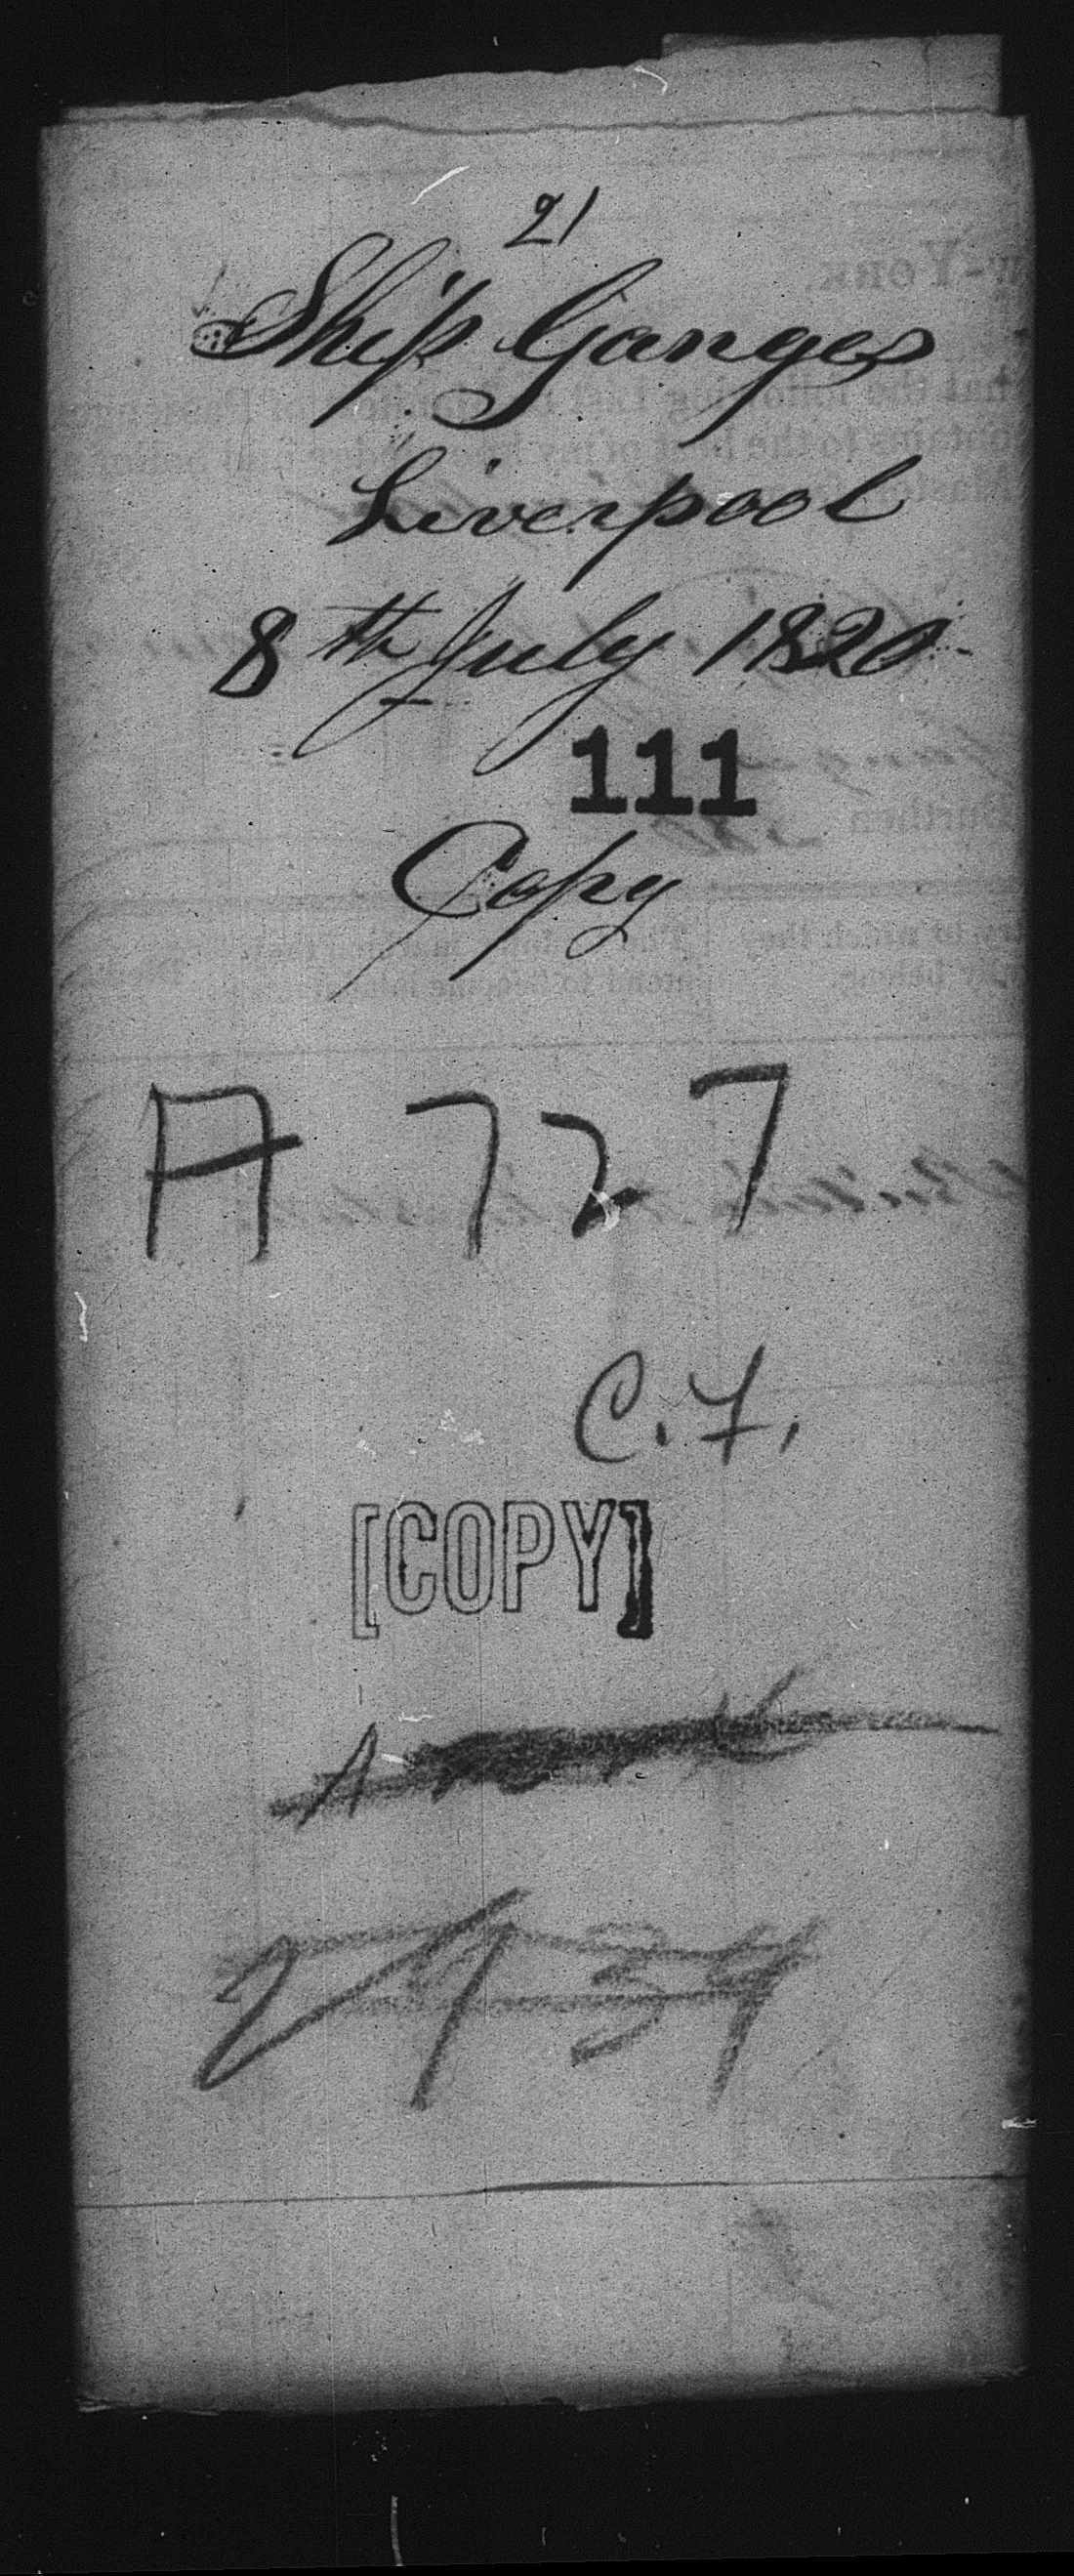 21
Ship Ganges
Liverpool
8th July 1820
111
Copy
A 727
C.F.
[COPY]